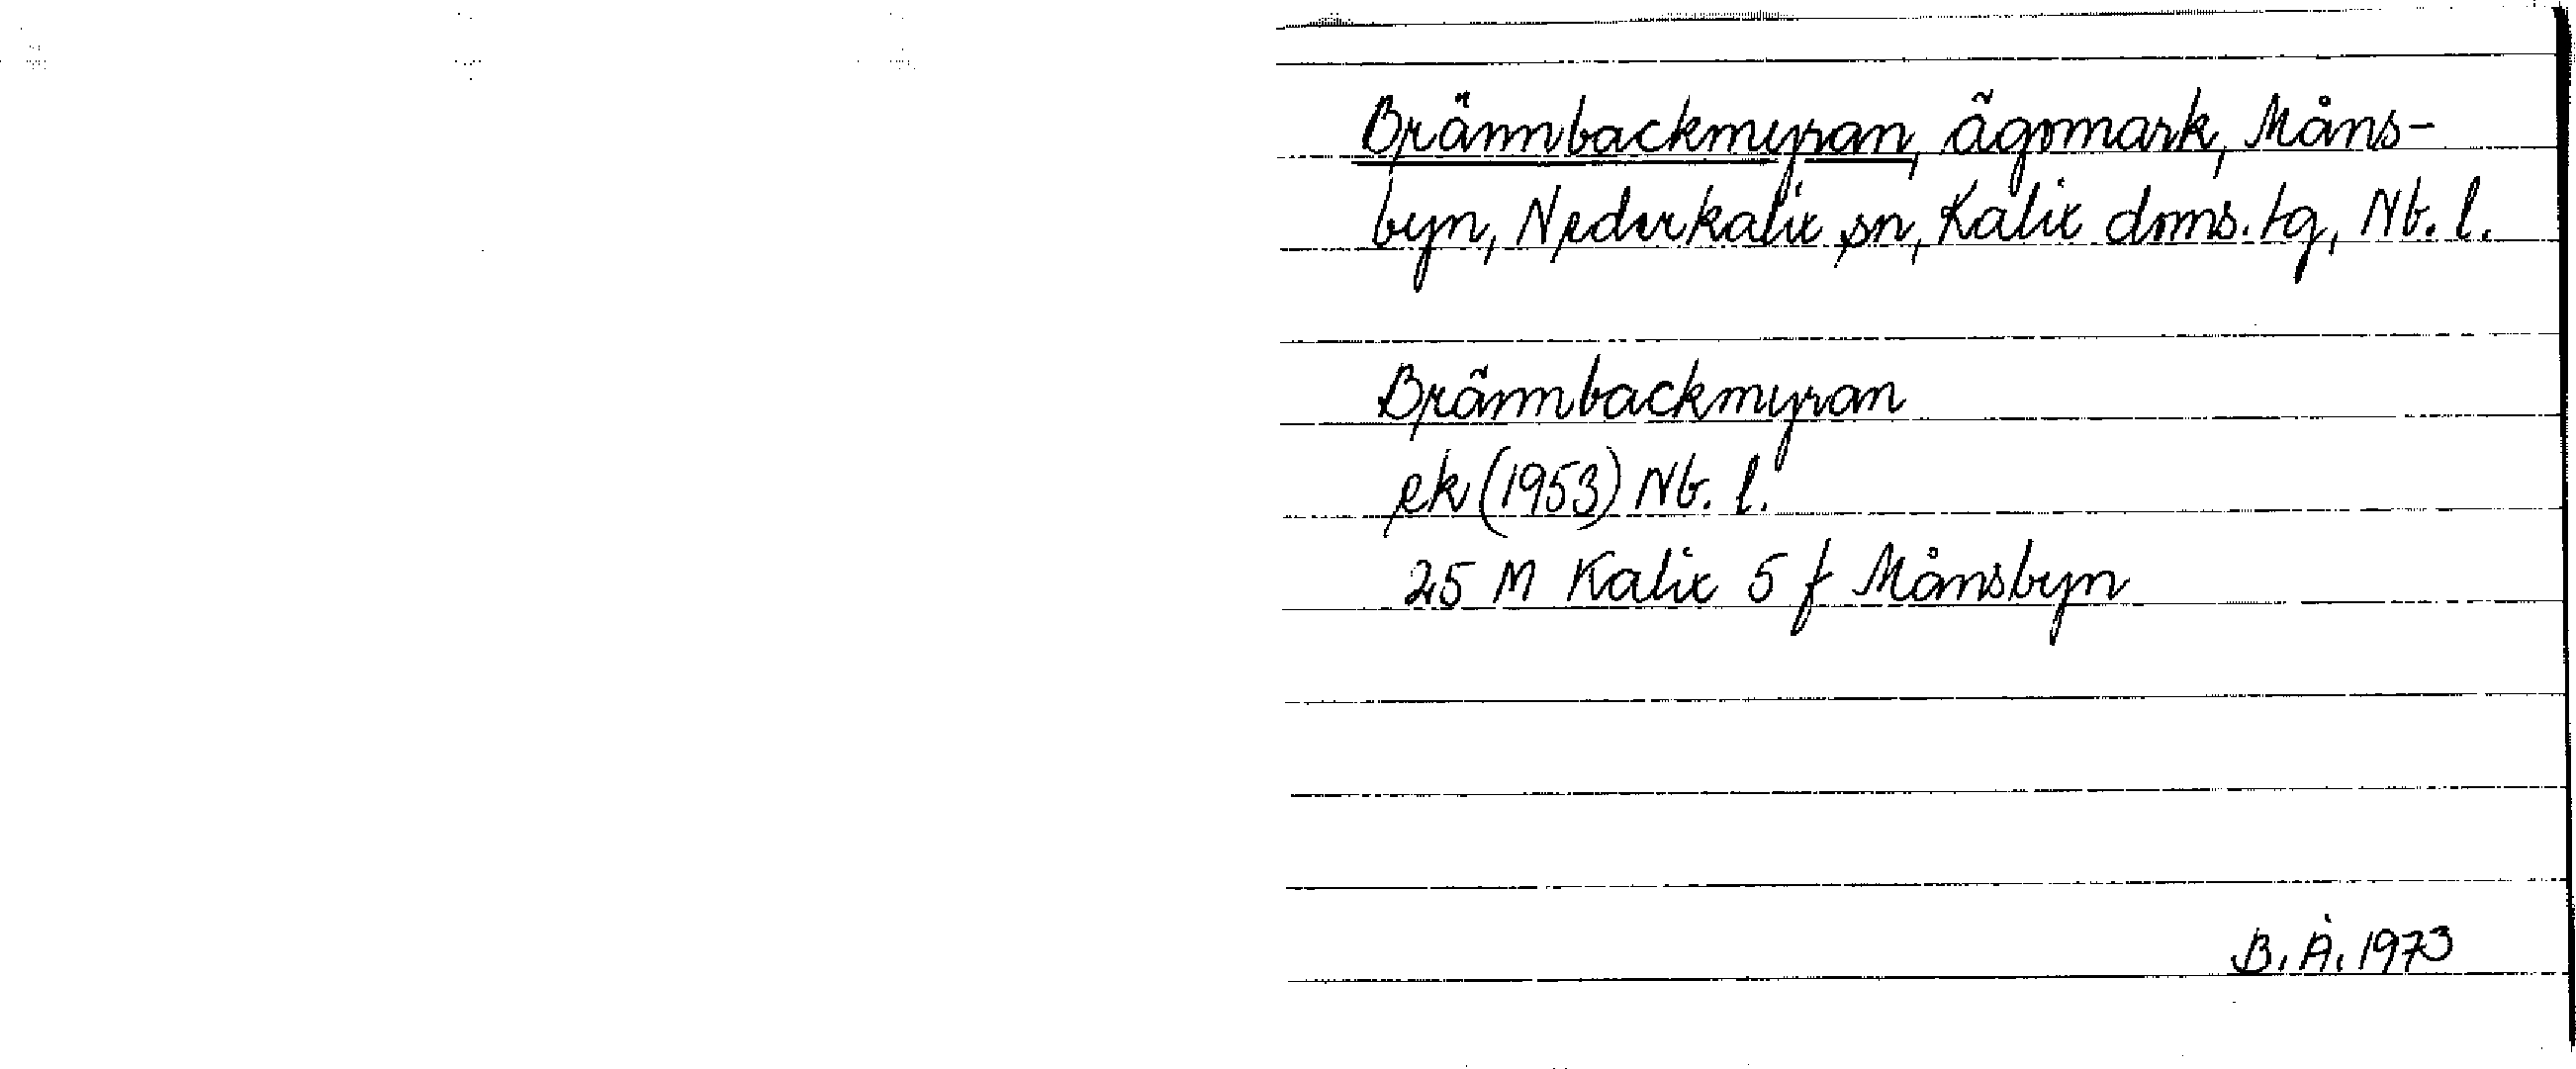 Brännbackmyran, ägomark, Måns-
byn, Nederkalix sn, Kalix doms. tg, Nb. l.
Brännbackmyran
ek (1953) Nb. l.
25 M Kalix 5 f Månsbyn
B. Å. 1973